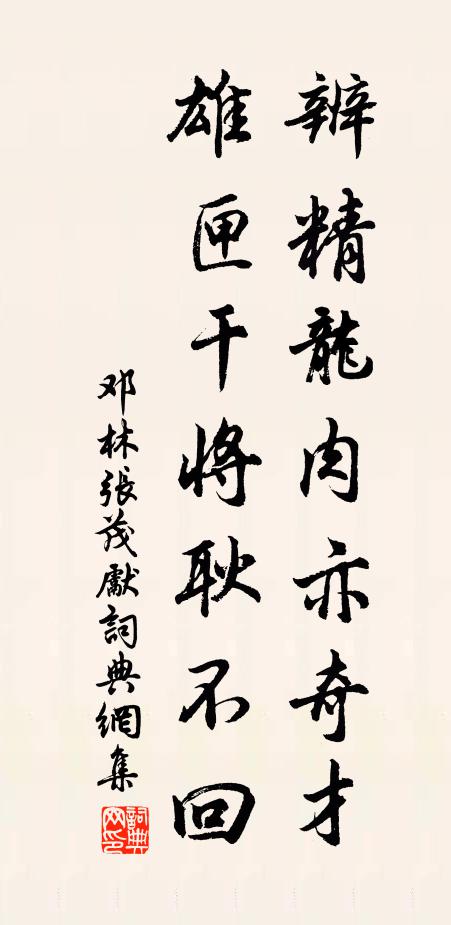 辨精龍肉亦奇才
雄匣干將耿不回
邓林張茂獻詞典網集
詞典網印